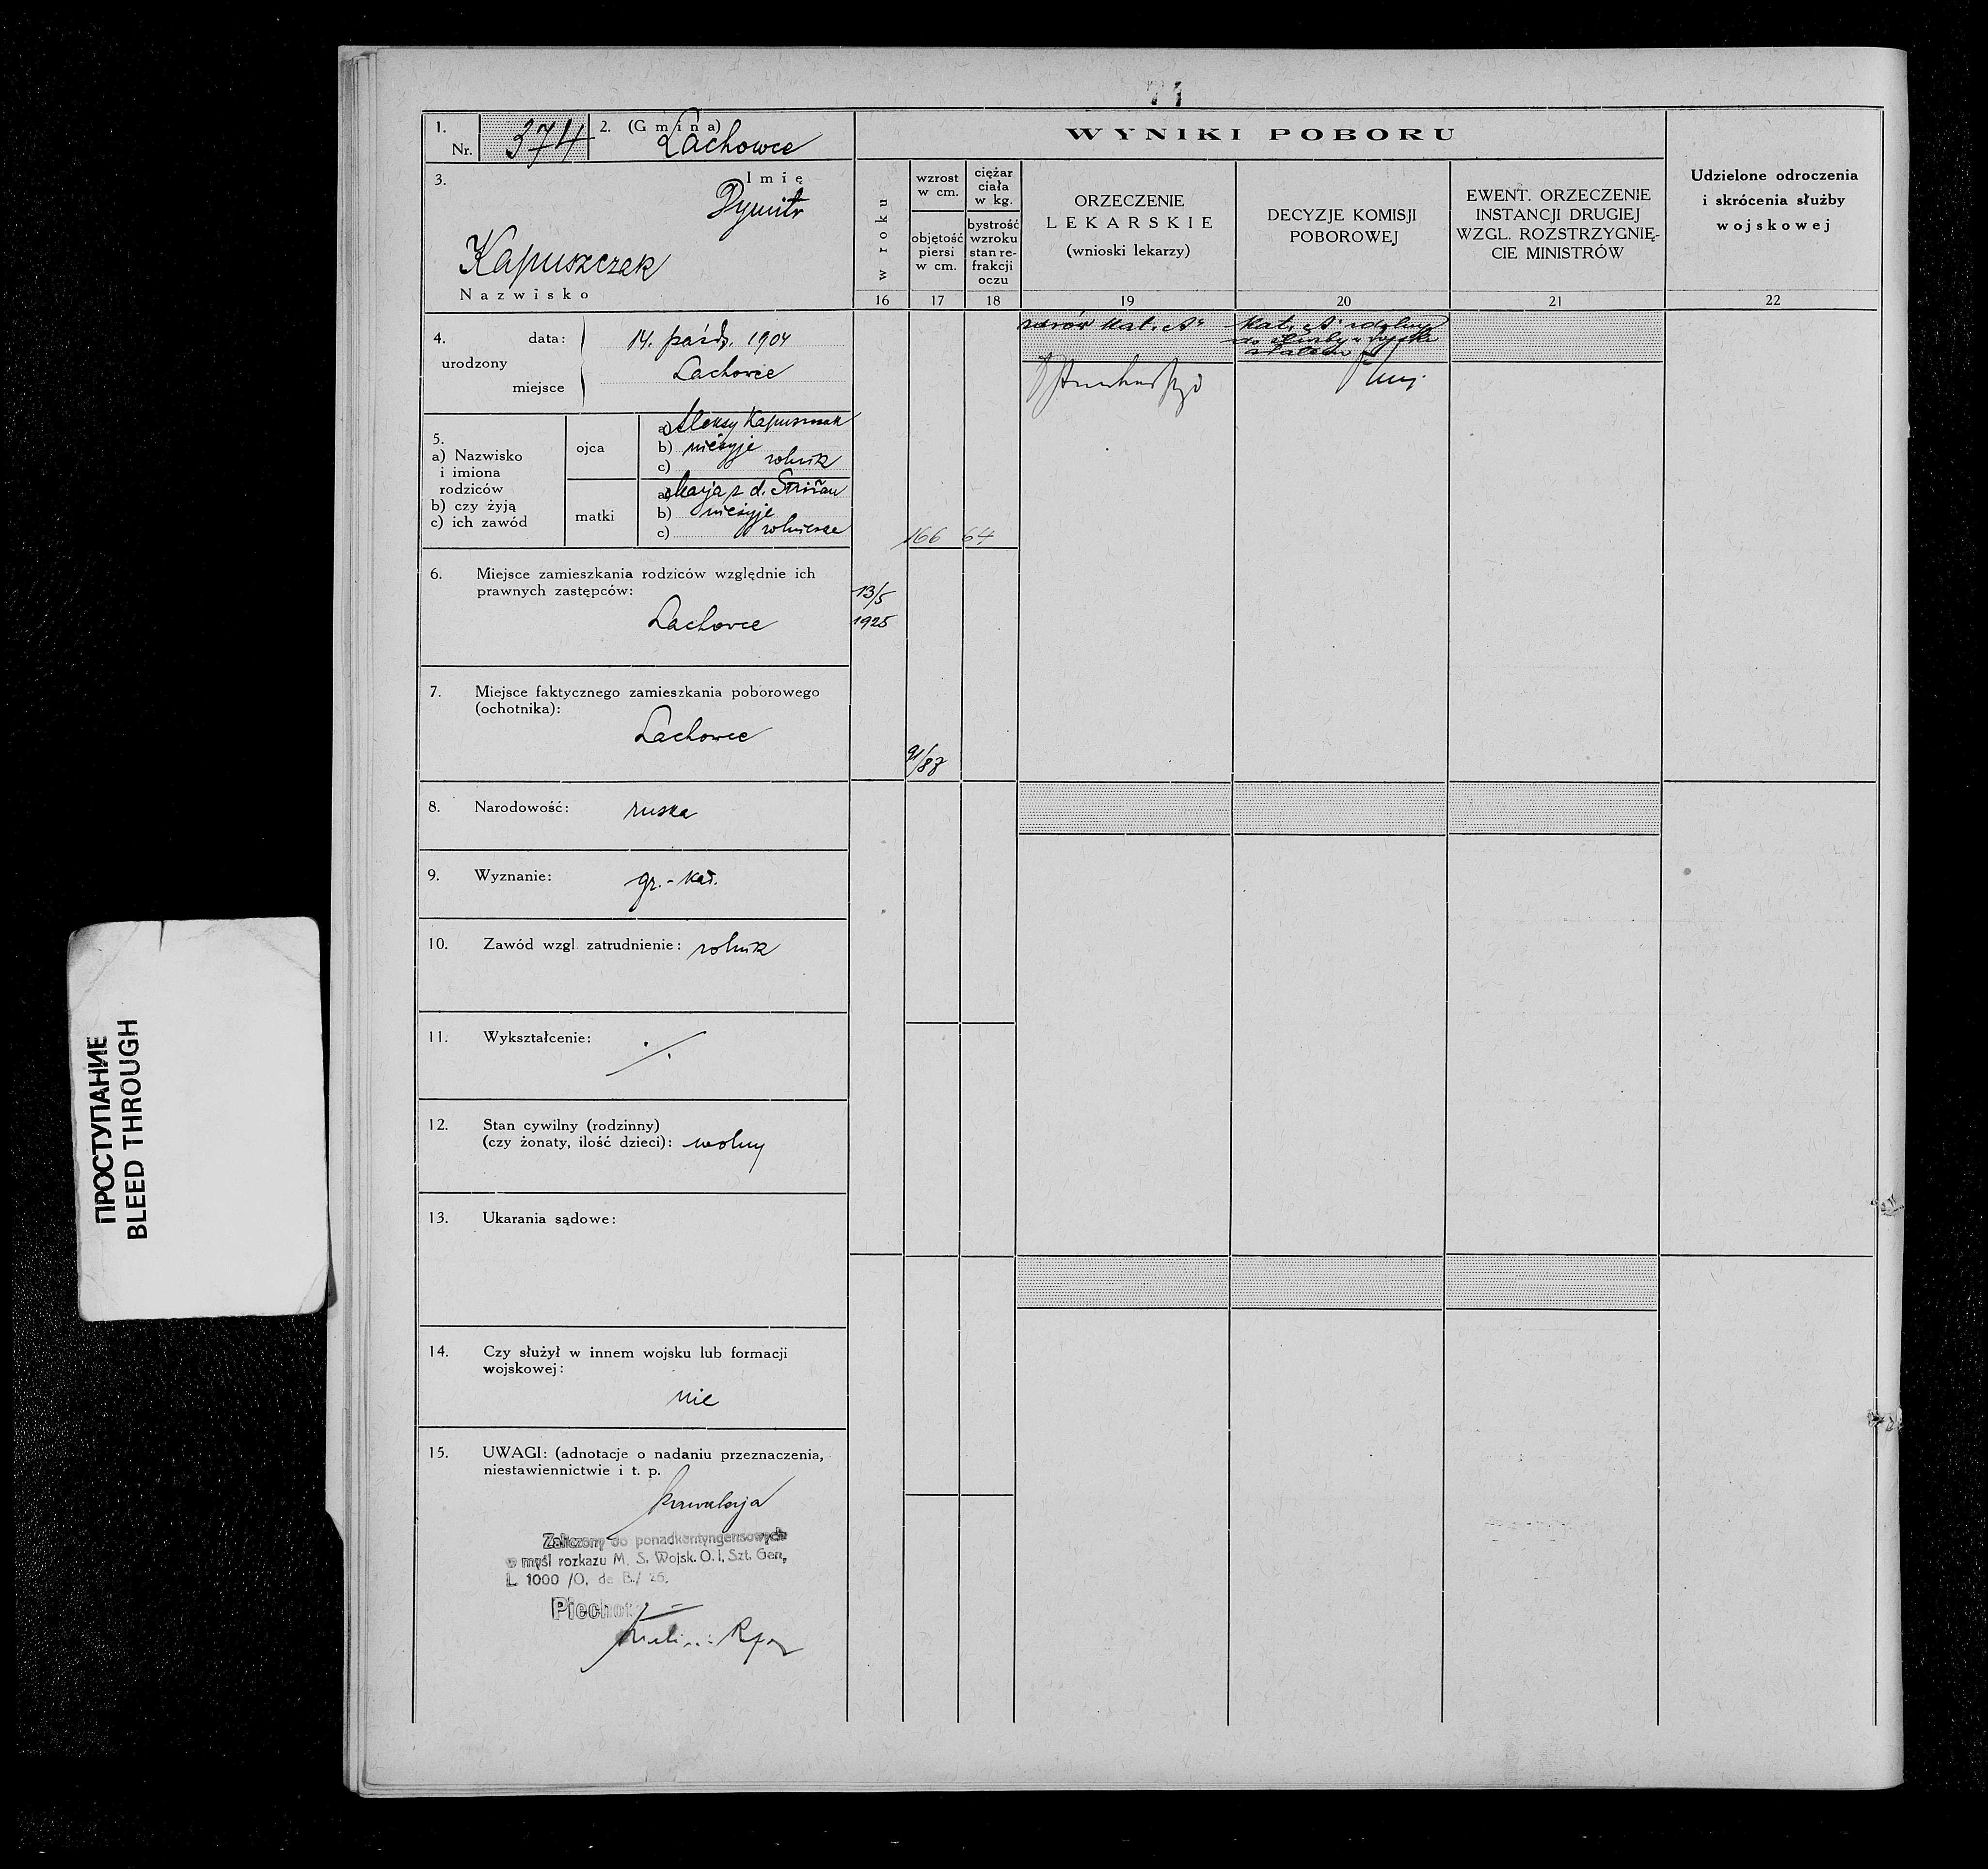 71
1.
Nr. 374
2. (Gmina)
Lachowce
3.
Imię
Dymitr
Kapuszczak
Nazwisko
WYNIKI POBORU
w roku
wzrost
w cm.
objętość
piersi
w cm.
ciężar
ciała
w kg.
bystrość
wzroku
stan re-
frakcji
oczu
ORZECZENIE
LEKARSKIE
(wnioski lekarzy)
DECYZJE KOMISJI
POBOROWEJ
EWENT. ORZECZENIE
INSTANCJI DRUGIEJ
WZGL. ROZSTRZYGNIĘ-
CIE MINISTRÓW
Udzielone odroczenia
i skrócenia służby
wojskowej
16 17 18 19 20 21 22
4.
urodzony
data: 14. paźdz. 1904
miejsce Lachowce
5.
a) Nazwisko
i imiona
rodziców
b) czy żyją
c) ich zawód
ojca
a) Aleksy Kapuszczak
b) nieżyje
c) rolnik
matki
a) Marja z d.
b) nieżyje
c) rolnicze
166 64
6. Miejsce zamieszkania rodziców względnie ich
prawnych zastępców:
Lachowce
13/5
1925
7. Miejsce faktycznego zamieszkania poborowego
(ochotnika):
Lachowce
91/87
8. Narodowość: ruska
9. Wyznanie: gr.-kat.
10. Zawód wzgl zatrudnienie: rolnik
11. Wykształcenie: ./.
12. Stan cywilny (rodzinny)
(czy żonaty, ilość dzieci): wolny
13. Ukarania sądowe:
14. Czy służył w innem wojsku lub formacji
wojskowej:
nie
15. UWAGI: (adnotacje o nadaniu przeznaczenia,
niestawiennictwie i t. p.
kawalerja
Zaliczony do ponadkontyngensowych
w myśl rozkazu M. S. Wojsk. O. I. Szt. Gen,
L 1000 /O. de B./ 26.
Piechota
Kat. A zdolny
do służby w wojsku
stałem
Kat. A"
ПРОСТУПАНИЕ
BLEED THROUGH